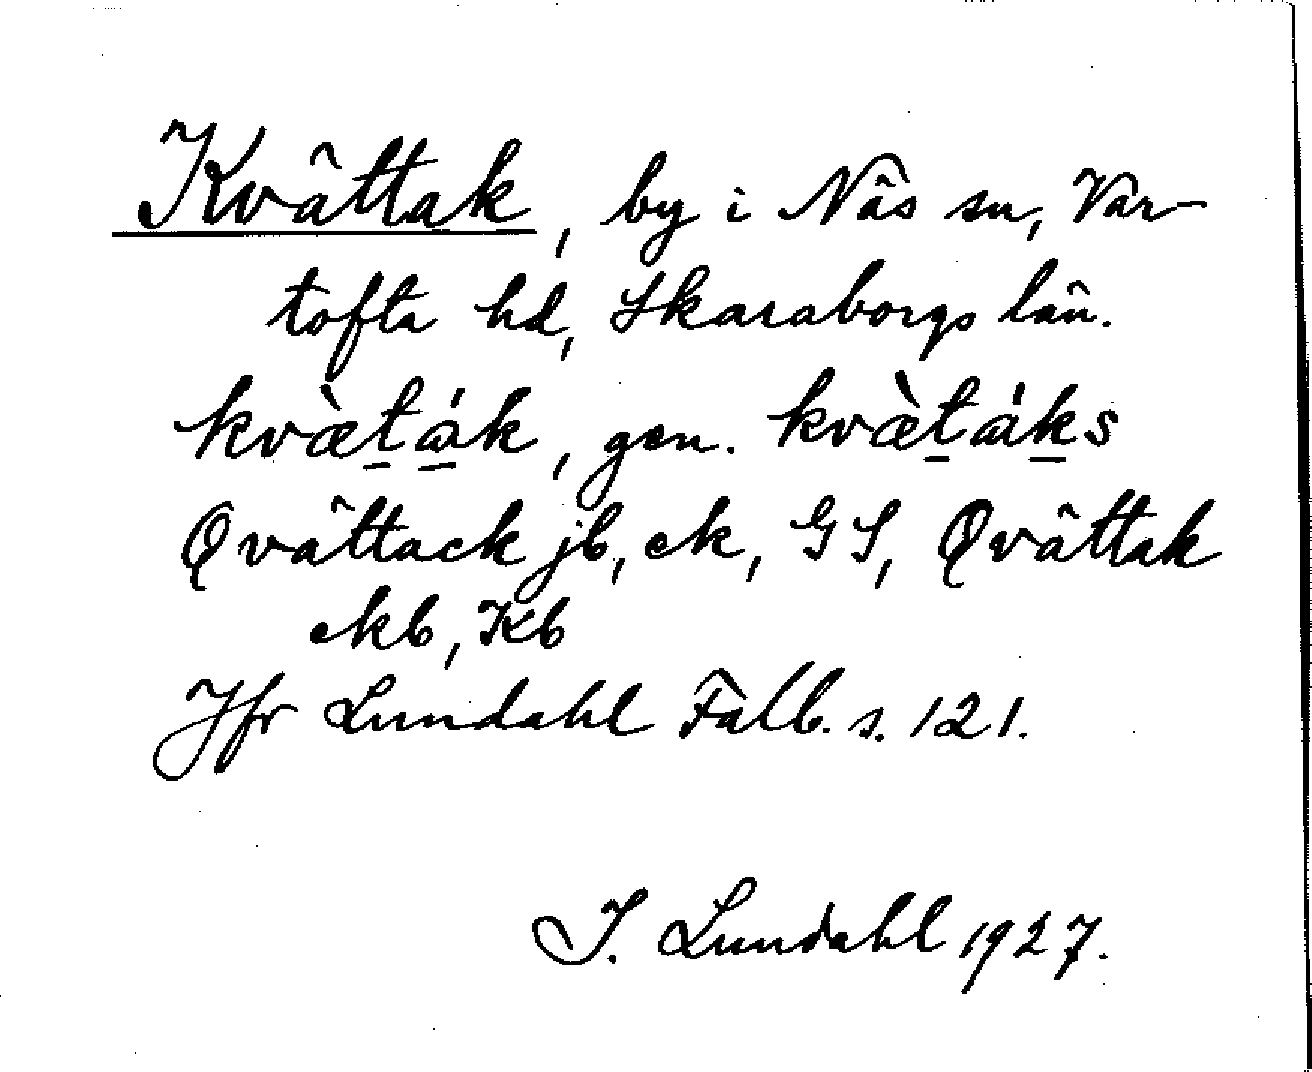 Kvättak, by i Näs sn, Var-
tofta hd, Skaraborgs län.
kvæ̀ta̍k, gen. kvæ̀ta̍ks
Qvättack jb, ek, GS, Qvättak
ekb, Kb
Jfr Lundahl Falb. s. 121.
I. Lundahl 1927.